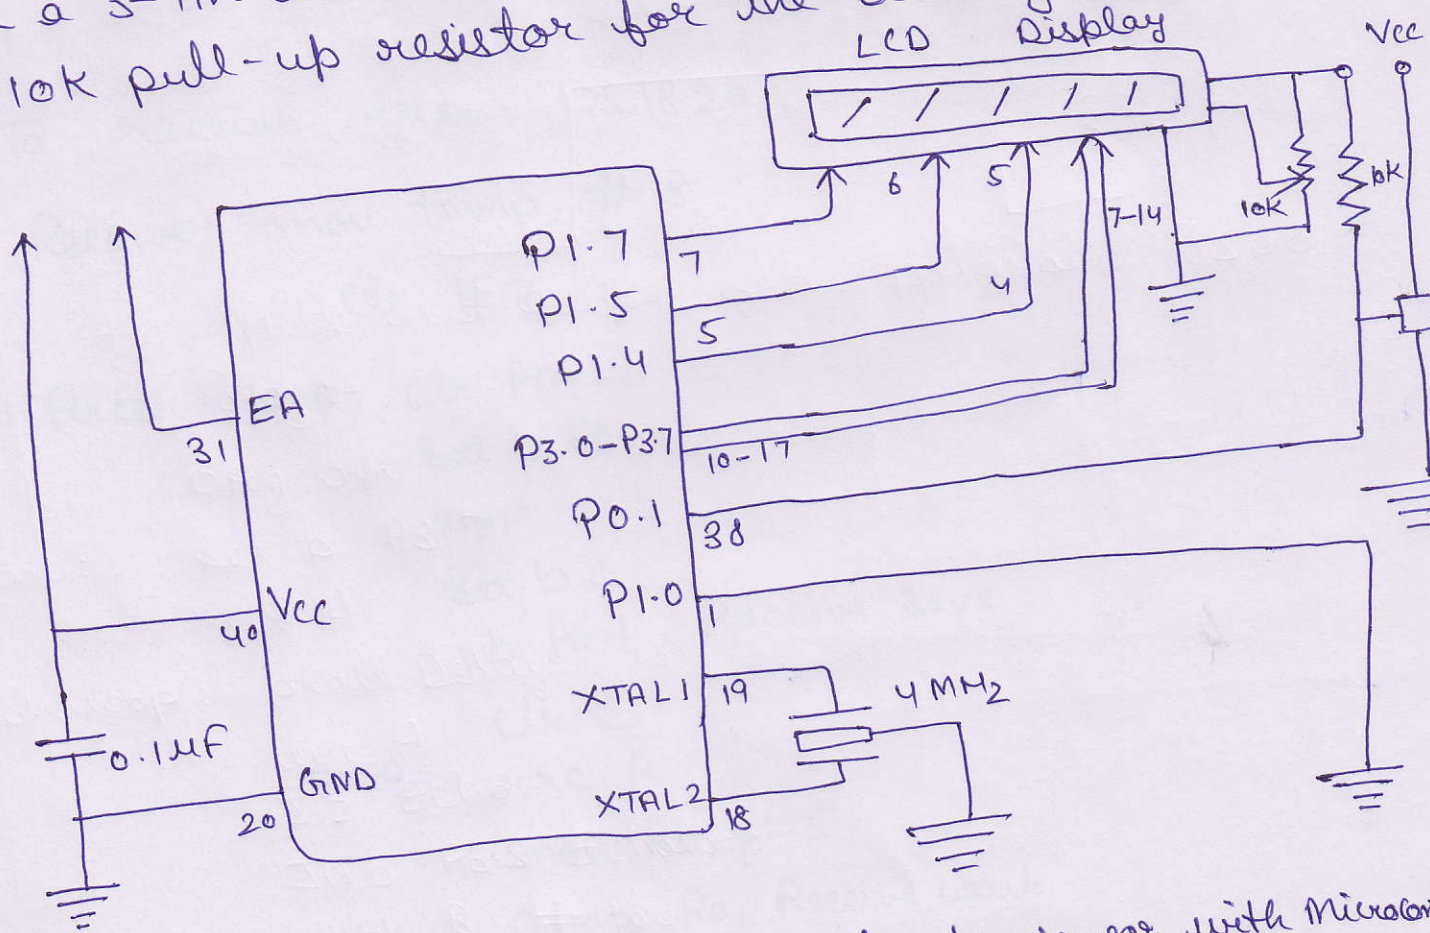 10K pull-up resistor for the
LCD Display
Vcc
6
5
7-14
10K
10K
P1.7
7
4
P1.5
5
P1.4
EA
31
P3.0-P3.7
10-17
P0.1
38
P1.0
1
Vcc
40
XTAL1
19
4 MHz
0.1μF
GND
20
XTAL2
18
with Microcon